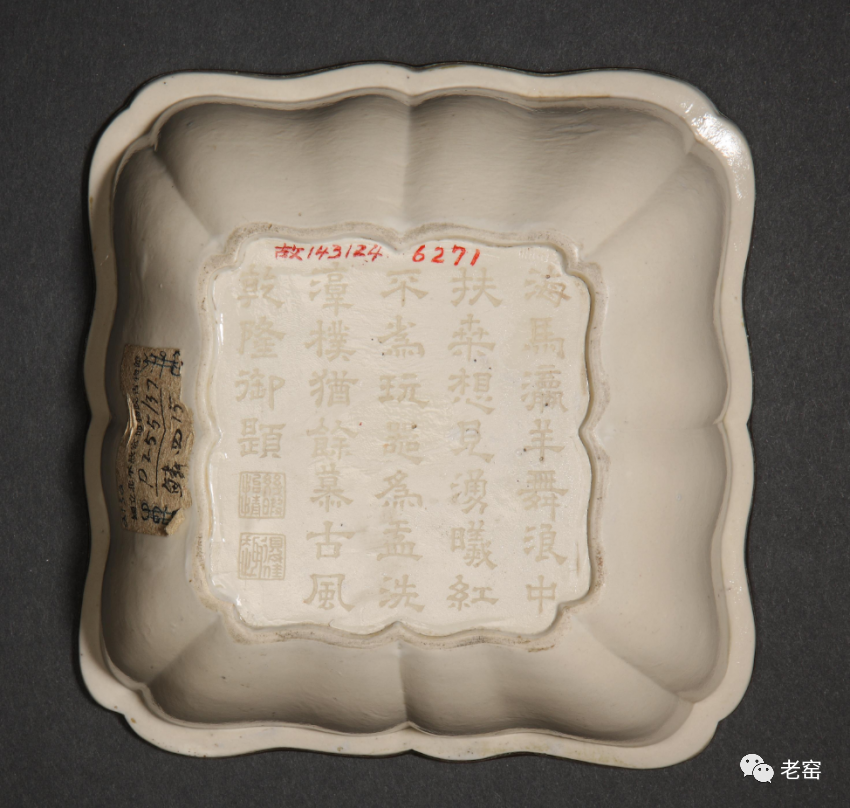 故143124 6271
海馬瀛羊舞浪中
扶桒想見湧曦紅
不為玩器為盂洗
淳樸猶餘慕古風
乾隆御題
P255/37
老窑